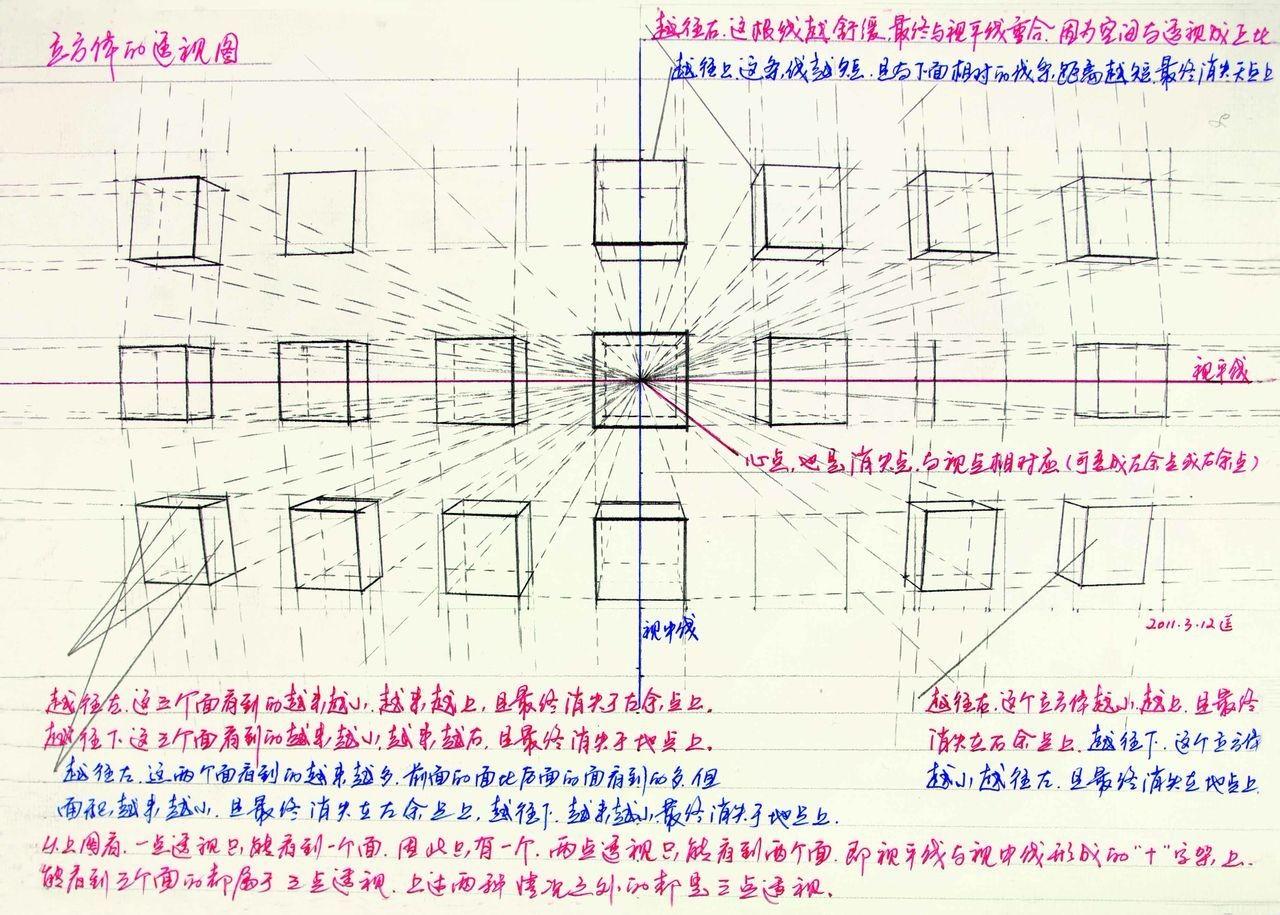 立方体的透视图
越往右.这根线越舒缓.最终与视平线重合.因为空间与透视成正比
越往上这条线越短.且与下面相对的线条,距离越短.最终消失天点上
视平线
心点,也是消失点,与视点相对应(可变成左余点或右余点)
视中线
2011.3.12
越往左.这三个面看到的越来越小.越来越上,且最终消失于左余点上.
越往下这三个面看到的越来越小,越来越右.且最终消失于地点上.
越往左.这两个面看到的越来越多.前面的面比后面的面看到的多.但
面积越来越小.且最终消失在左余点上,越往下.越来越小,最终消失于地点上.
越往右.这个立方体越小.越上.且最终
消失在右余点上.越往下.这个立方体
越小越往左.且最终消失在地点上.
从上图看.一点透视只能看到一个面.因此只有一个.两点透视只能看到两个面.即视平线与视中线形成的"十"字架上.
能看到三个面的都属于三点透视.上述两种情况之外的都是三点透视.